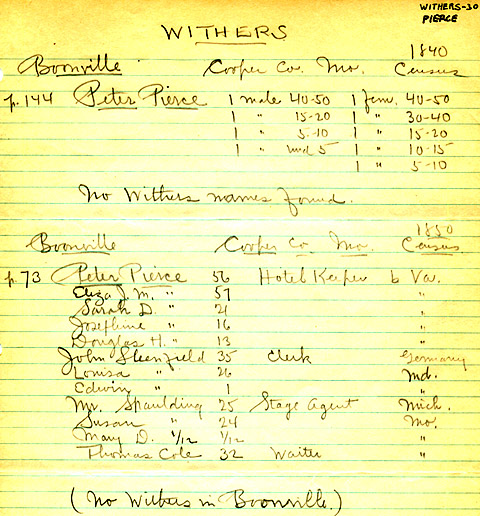 WITHERS-30
PIERCE
WITHERS
1840
Boonville Cooper Co. Mo. Census
p. 144 Peter Pierce 1 male 40-50 1 fem. 40-50
1 " 15-20 1 " 30-40
1 " 5-10 1 " 15-20
1 " und 5 1 " 10-15
1 " 5-10
No Withers names found.
1850
Boonville Cooper Co. Mo. Census
p. 73 Peter Pierce 56 Hotel Keeper b Va.
Eliza J. M. " 57 "
Sarah D. " 21 "
Josephine " 16 "
Douglas H. " 13 "
John Sleenfield 35 Clerk Germany
Louisa " 26 Md.
Edwin " 1 "
Mr. Spaulding 25 Stage Agent Mich.
Susan " 24 Mo.
Mary D. 1/12 1/12 "
Thomas Cole 32 Waiter "
(No Withers in Boonville.)